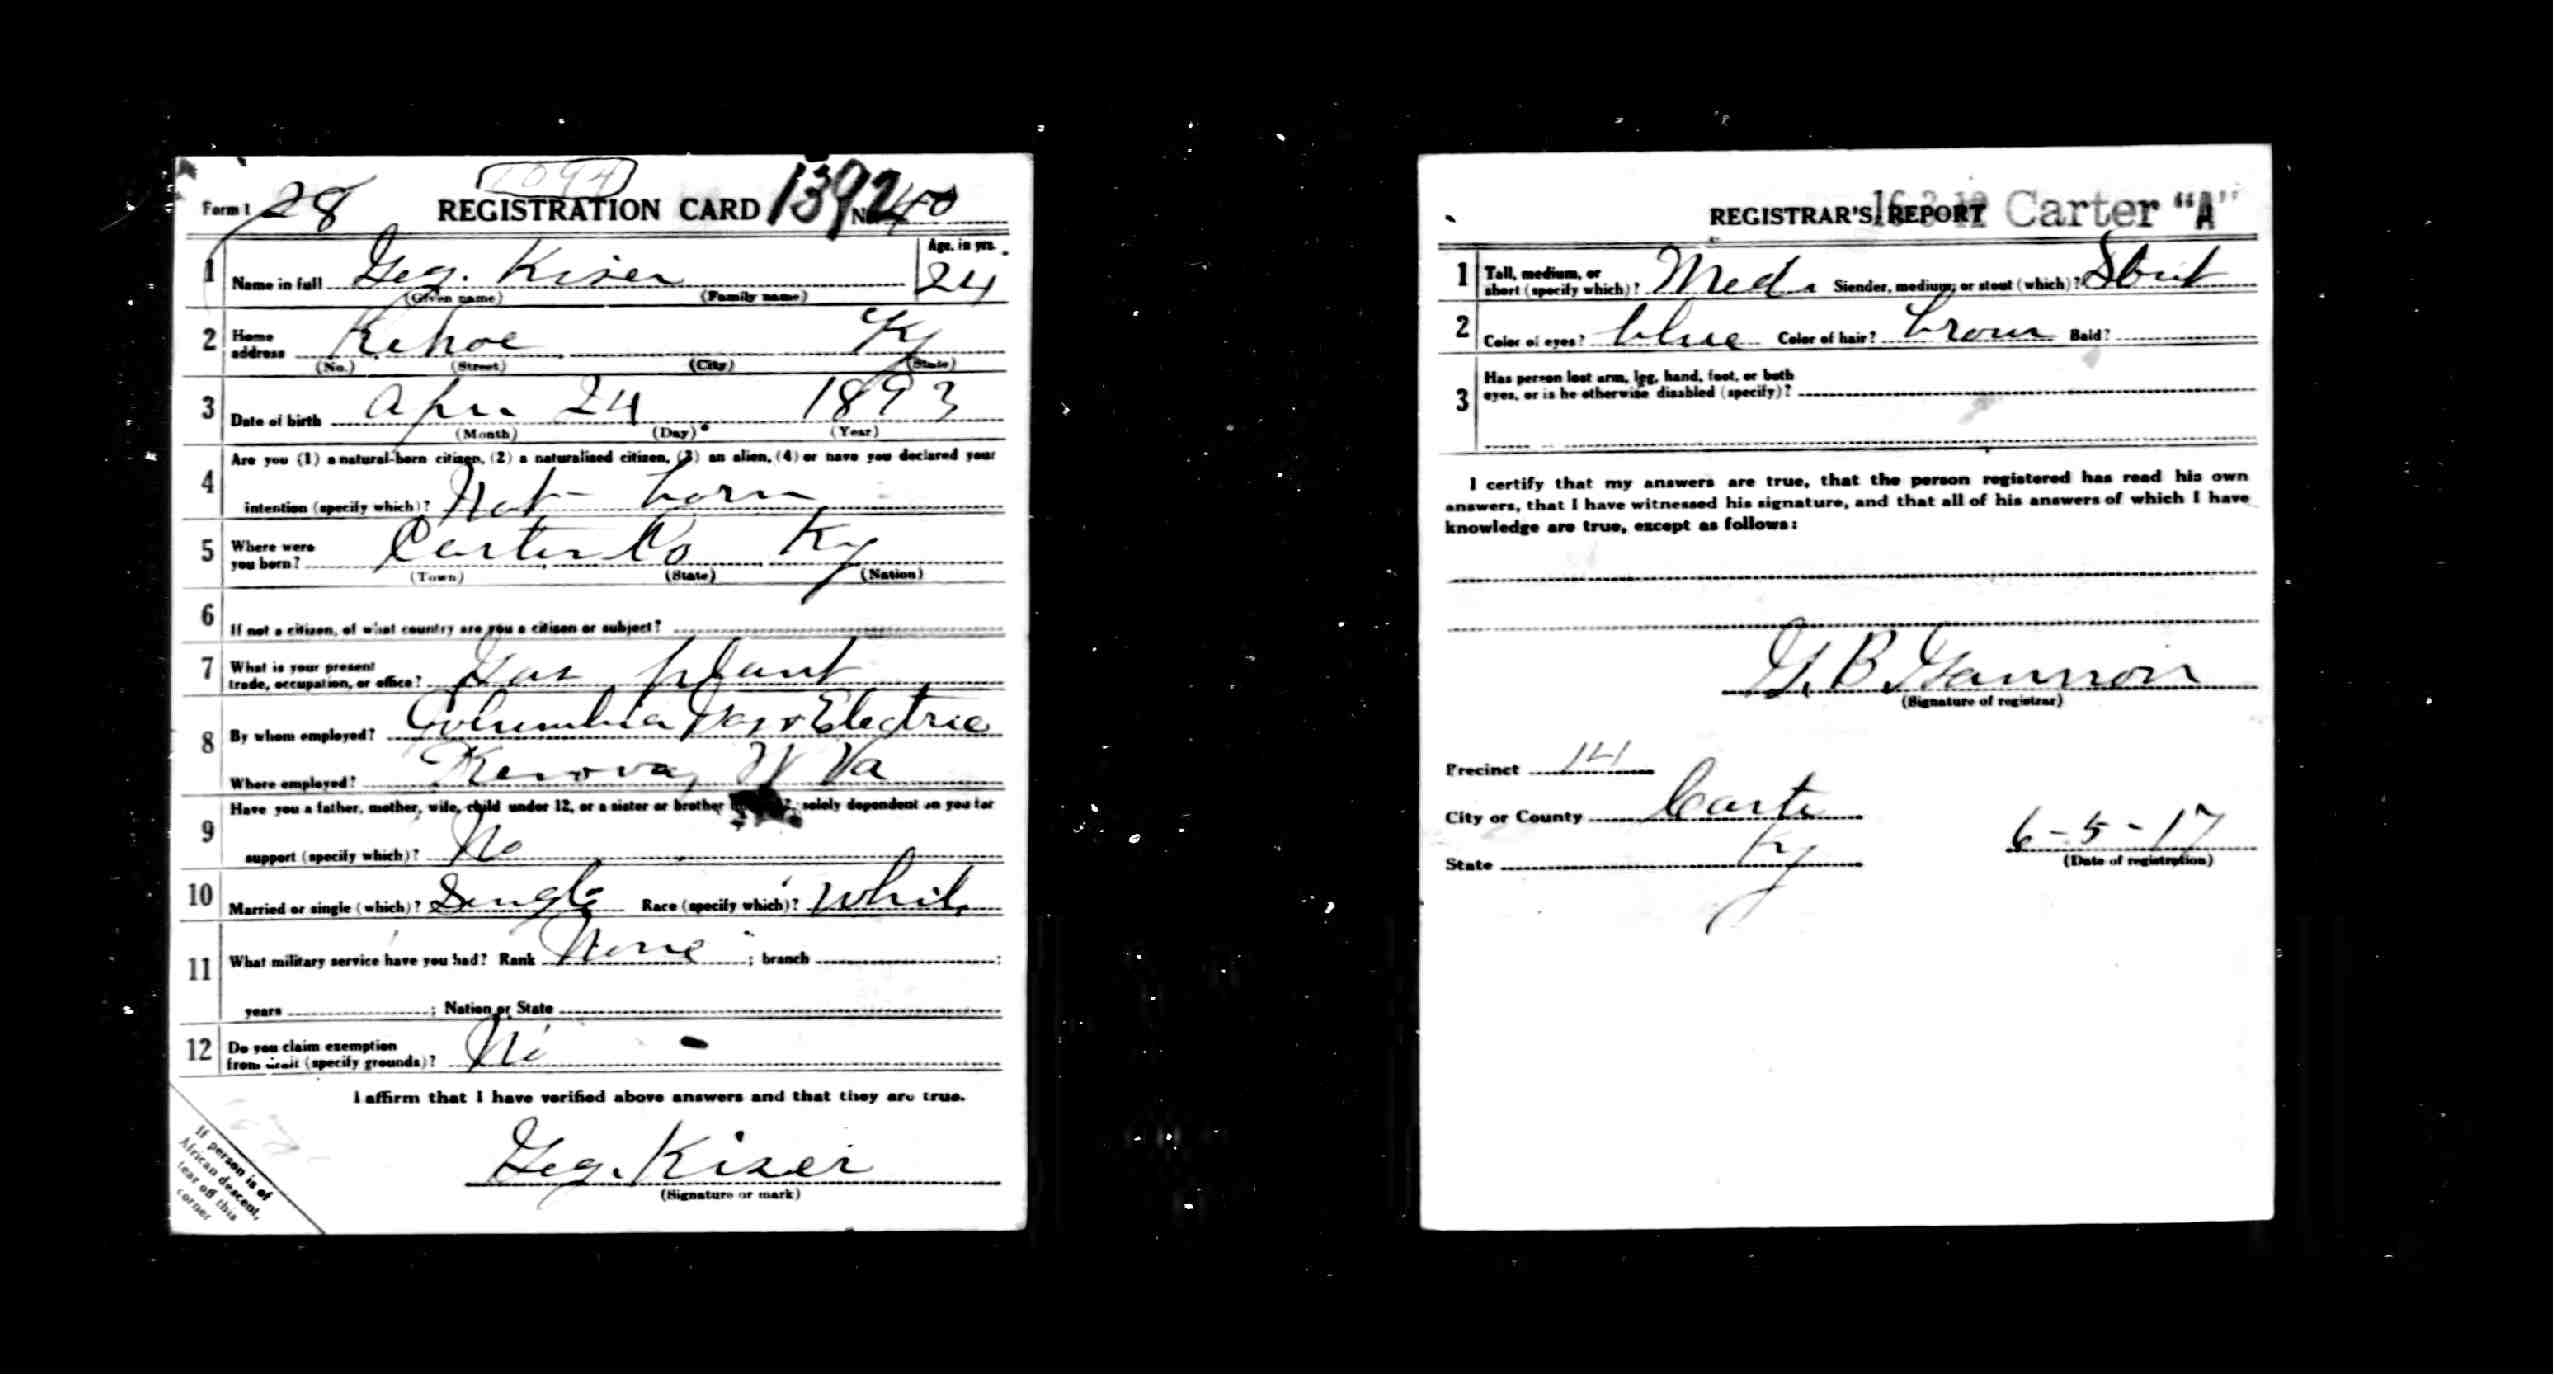 Form 1 28 REGISTRATION CARD 1392 No. 40
1 Name in full Geo. Kiser Age, in yrs. 24
(Given name) (Family name)
2 Home address Kehoe Ky
(No.) (Street) (City) (State)
3 Date of birth Apr. 24 1893
(Month) (Day) (Year)
4 Are you (1) a natural-born citizen, (2) a naturalized citizen, (3) an alien, (4) or have you declared your
intention (specify which)? Nat born
5 Where were you born? Carter Co Ky
(Town) (State) (Nation)
6 If not a citizen, of what country are you a citizen or subject?
7 What is your present trade, occupation, or office? Gas plant
8 By whom employed? Columbia Gas & Electric
Where employed? Kenova, W Va
9 Have you a father, mother, wife, child under 12, or a sister or brother solely dependent on you for
support (specify which)? No
10 Married or single (which)? Single Race (specify which)? White
11 What military service have you had? Rank None ; branch ;
years ; Nation or State
12 Do you claim exemption from draft (specify grounds)? No
I affirm that I have verified above answers and that they are true.
Geo. Kiser
(Signature or mark)
If person is of
African descent,
tear off this
corner
REGISTRAR'S REPORT Carter "A"
1 Tall, medium, or short (specify which)? Med. Slender, medium, or stout (which)? Stout
2 Color of eyes? blue Color of hair? brown Bald?
3 Has person lost arm, leg, hand, foot, or both
eyes, or is he otherwise disabled (specify)?
I certify that my answers are true, that the person registered has read his own
answers, that I have witnessed his signature, and that all of his answers of which I have
knowledge are true, except as follows:
G. B. Gannon
(Signature of registrar)
Precinct 14
City or County Carter
State Ky 6-5-17
(Date of registration)